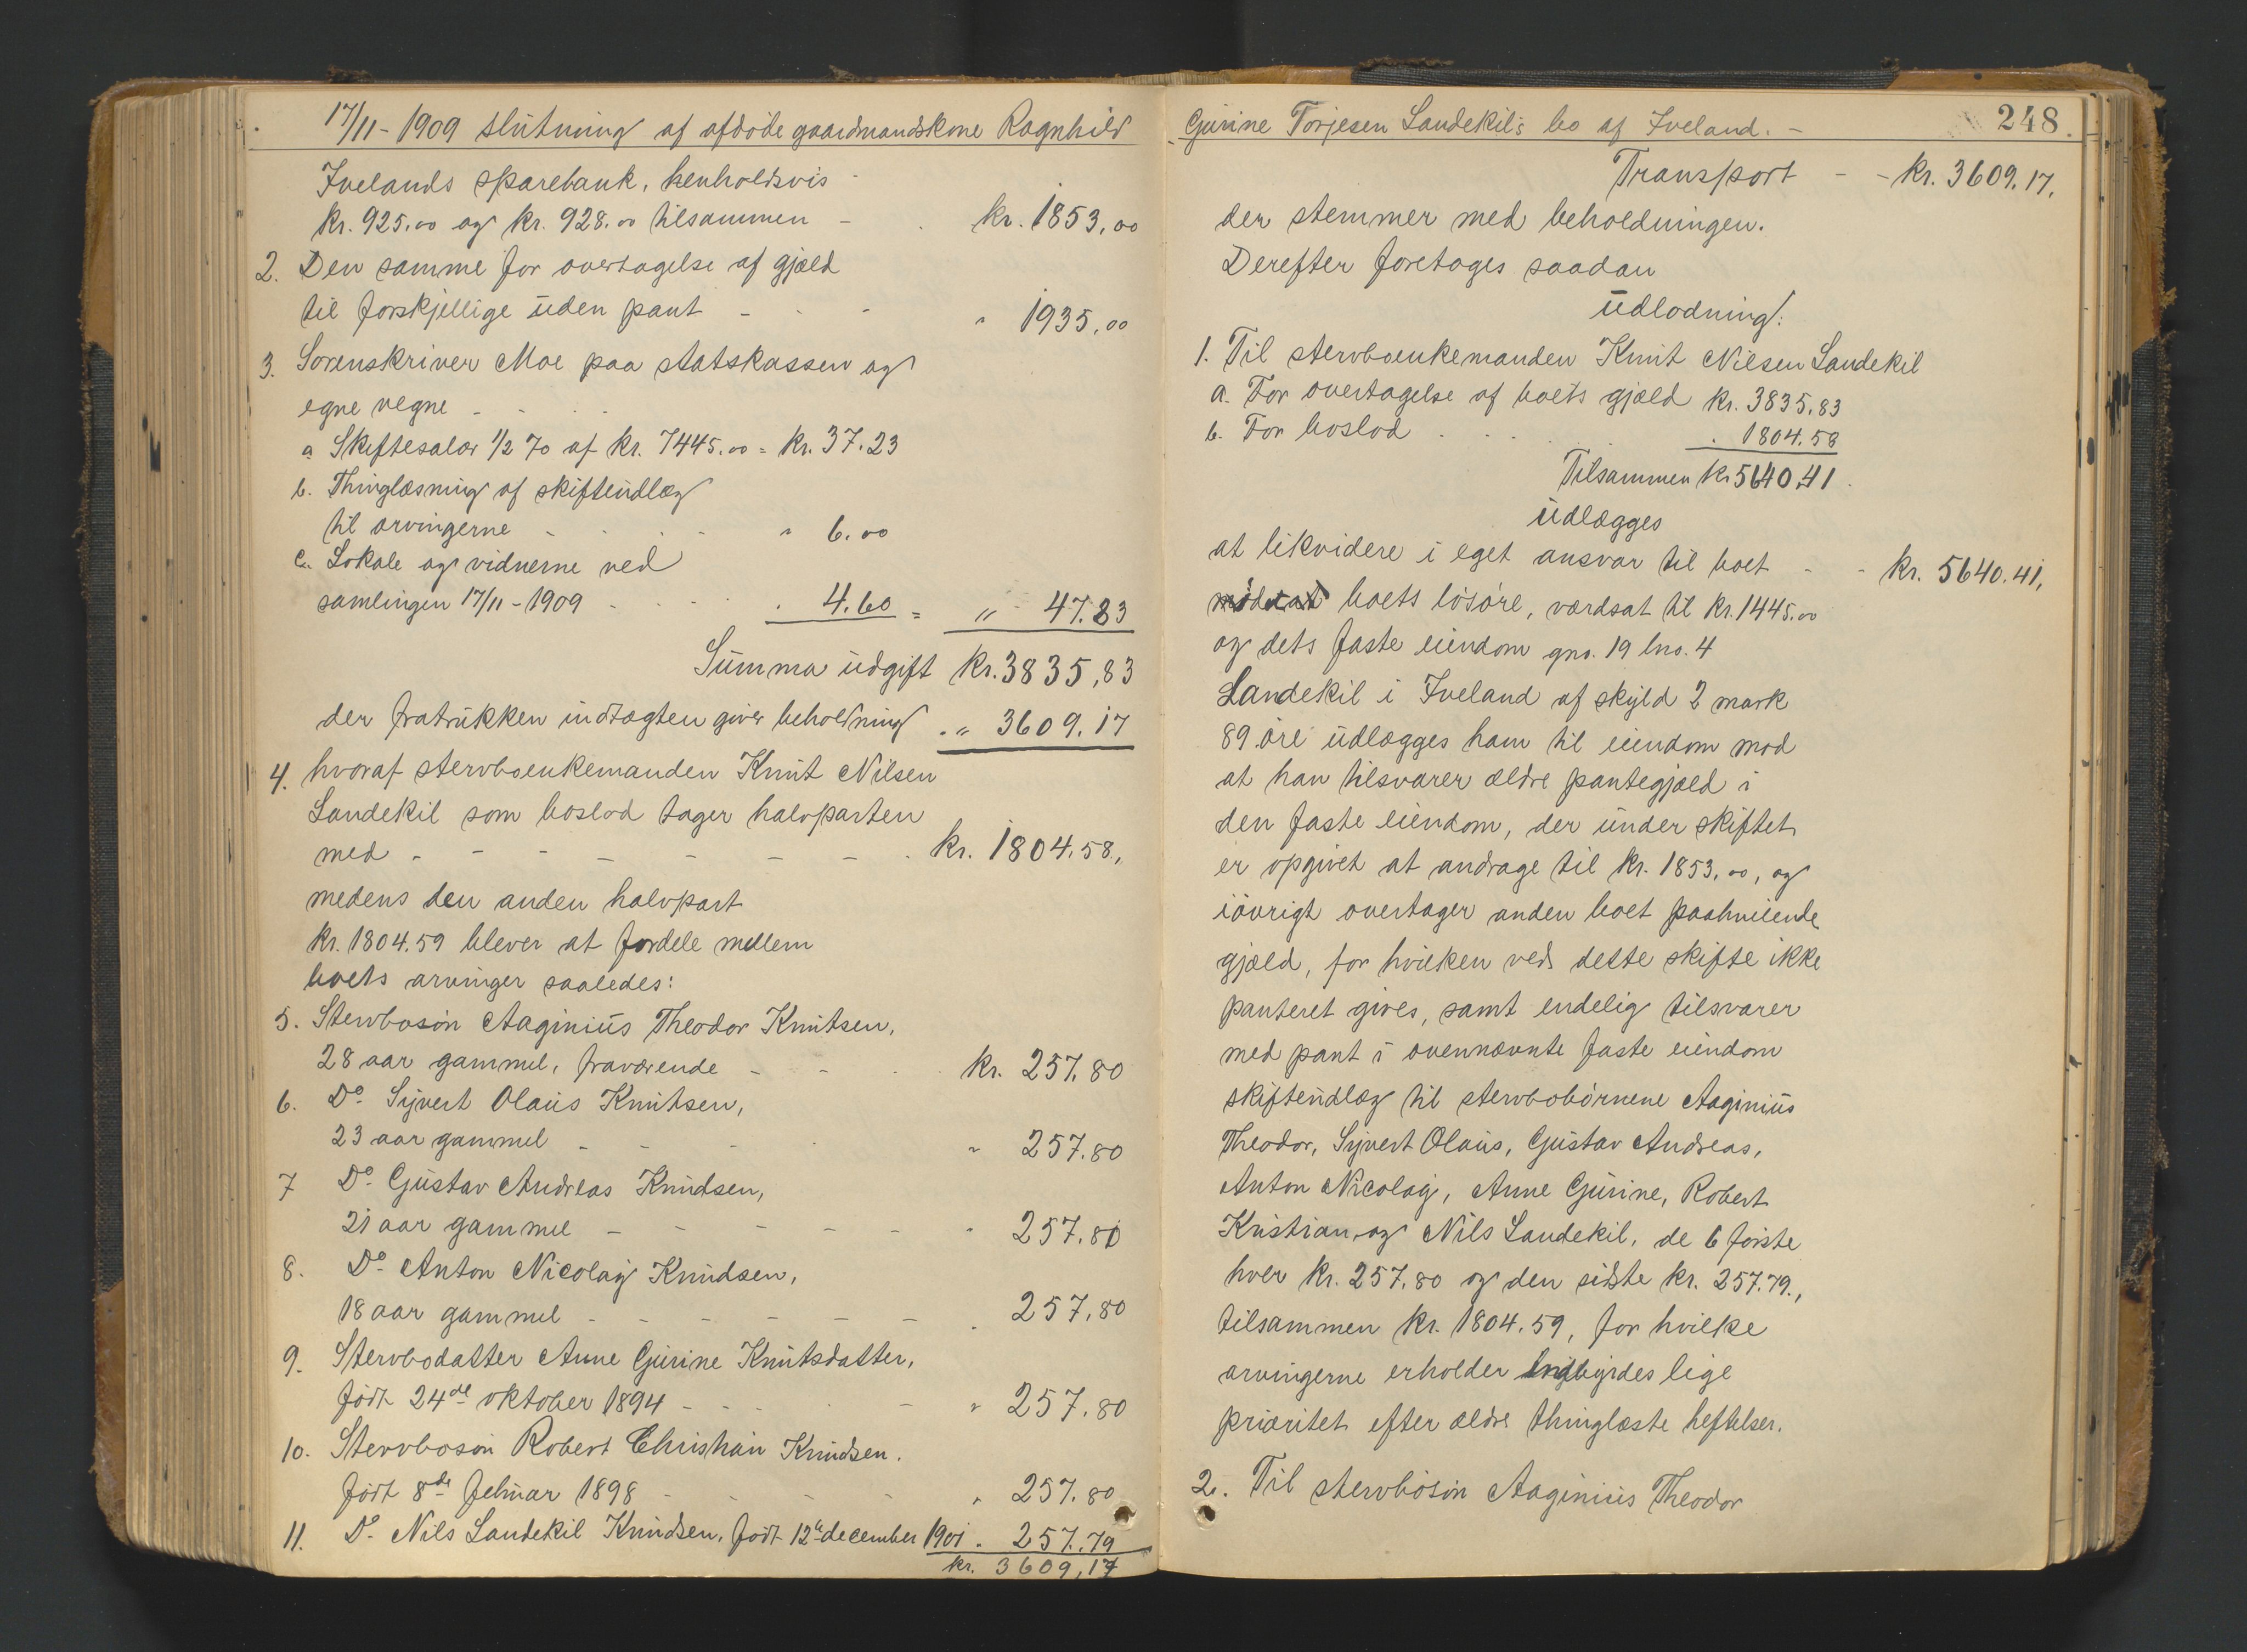 17/11 - 1909 slutning af afdøde gaardmandskone Ragnhild
Ivelands sparebank, henholdsvis
kr. 925.00 og kr. 928.00 tilsammen - kr. 1853,00
2. Den samme for overtagelse af gjæld
til forskjellige uden pant - - - " 1935,00
3. Sorenskriver Moe paa statskassen og
egne vegne - - - -
a Skiftesalær 1/2 % af kr. 7445.00 = kr. 37.23
b. Thinglæsning af skifteudlæg
til arvingerne - - - - " 6.00
c. Lokale og vidnerne ved
samlingen 17/11 - 1909 - - - - . 4.60 = " 47.83
Summa udgift kr. 3835,83
der fratrukken indtægten giver beholdning . " 3609.17
4. hvoraf stervboenkemanden Knut Nilsen
Landekil som boslod tager halvparten
med - - - - - - - kr. 1804.58,
medens den anden halvpart
kr. 1804.59 blever at fordele mellem
boets arvinger saaledes:
5. Stervbosøn Aaginius Theodor Knutsen,
28 aar gammel, fraværende - - - kr. 257.80
6. Do Sijvert Olaus Knutsen,
23 aar gammel - - - - " 257.80
7 Do Gustav Andreas Knudsen,
21 aar gammel - - - - - - 257.80
8. Do Anton Nicolaij Knudsen,
18 aar gammel - - - - - - . 257.80
9. Stervbodatter Anne Gurine Knutsdatter,
født 24de oktober 1894 - - - - - " 257.80
10. Stervbosøn Robert Christian Knudsen.
født 8de februar 1898 - - - - " 257.80
11. Do Nils Landekil Knudsen, født 12te december 1901 . 257.79
kr. 3609,17
Gurine Torjesen Landekils bo af Iveland. - 248.
Transport - - kr. 3609.17.
der stemmer med beholdningen.
Derefter foretages saadan
udlodning:
1. Til stervboenkemanden Knut Nilsen Landekil
a. For overtagelse af boets gjæld kr. 3835.83
b. For boslod . . . . . 1804.58
Tilsammen kr 5640.41.
udlægges
at likvidere i eget ansvar til boet - - kr. 5640.41,
boets løsøre, værdsat til kr. 1445.00
og dets faste eiendom gno. 19 bno. 4
Landekil i Iveland af skyld 2 mark
89 øre udlægges ham til eiendom mod
at han tilsvarer ældre pantegjæld i
den faste eiendom, der under skiftet
er opgivet at andrage til kr. 1853.00, og
iøvrigt overtager anden boet paahvilende
gjæld, for hvilken ved dette skifte ikke
panteret gives, samt endelig tilsvarer
med pant i ovennævnte faste eiendom
skifteudlæg til stervbobørnene Aaginius
Theodor, Sijvert Olaus, Gustav Andreas,
Anton Nicolaij, Anne Gurine, Robert
Kristian og Nils Landekil, de 6 første
hver kr. 257.80 og den sidste kr. 257.79.,
tilsammen kr. 1804.59, for hvilke
arvingerne erholder indbyrdes lige
prioritet efter ældre thinglæste heftelser.
2. Til stervbosøn Aaginius Theodor